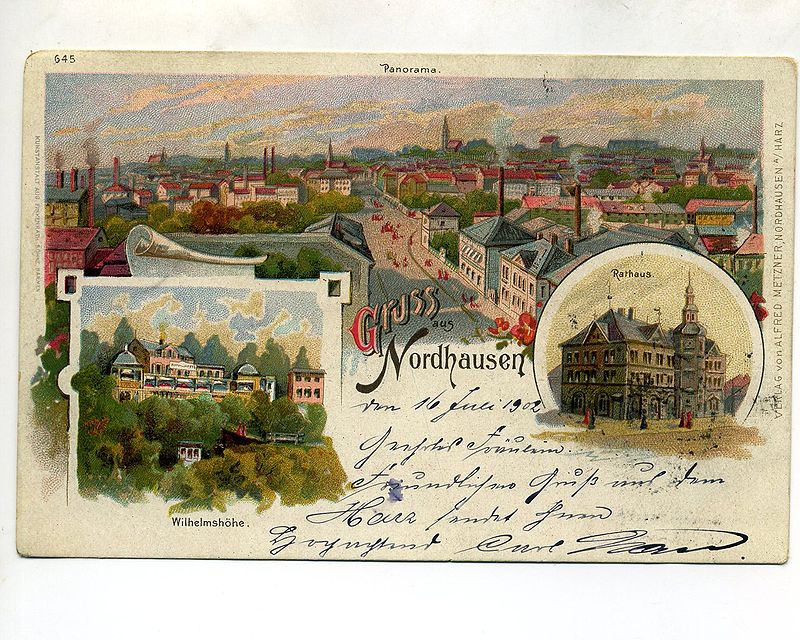 645
Panorama.
KUNSTANSTALT
Rathaus.
VERLAG von ALFRED METZNER, NORDHAUSEN a/HARZ
Gruss
aus
Nordhausen
den 16 Juli 1902
Geehrtes Fräulein.
Freundlichen Gruß aus dem
Harz sendet Ihnen
Hochachtend Carl
Wilhelmshöhe.